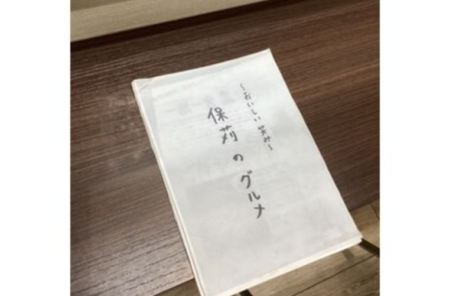 ～おいしい笑み～
保苅のグルメ